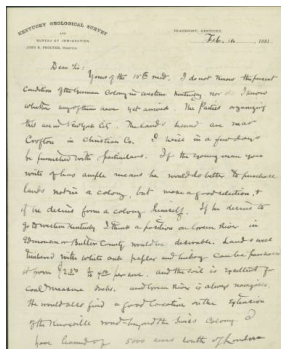 KENTUCKY GEOLOGICAL SURVEY
AND
BUREAU OF IMMIGRATION
JOHN R. PROCTER, Director
FRANKFORT, KENTUCKY,
Feb. 188
Dear Sir:
Yours of the 15th inst. I do not know the present
condition of the German Colony in western Kentucky nor do I know
whether any of them have yet arrived. The
this are in New York City. The lands are near
Crofton in Christian Co. I will in a few days
be furnished with particulars. If the young man you
write of has ample means he would do better to purchase
lands not in a colony, but near a good station, &
if he desires form a colony himself. If he desires to
go to western Kentucky I think a position on Green River in
or Butler County would be desirable. Lands well
timbered with white oak poplar and hickory can be purchased
at from per acre. and the soil is excellent for
coal measure soils. and Green River is always navigable.
He would also find a good location on the extension
of the Knoxville road beyond the Swiss Colony. I
have heard of 5000 acres south of London